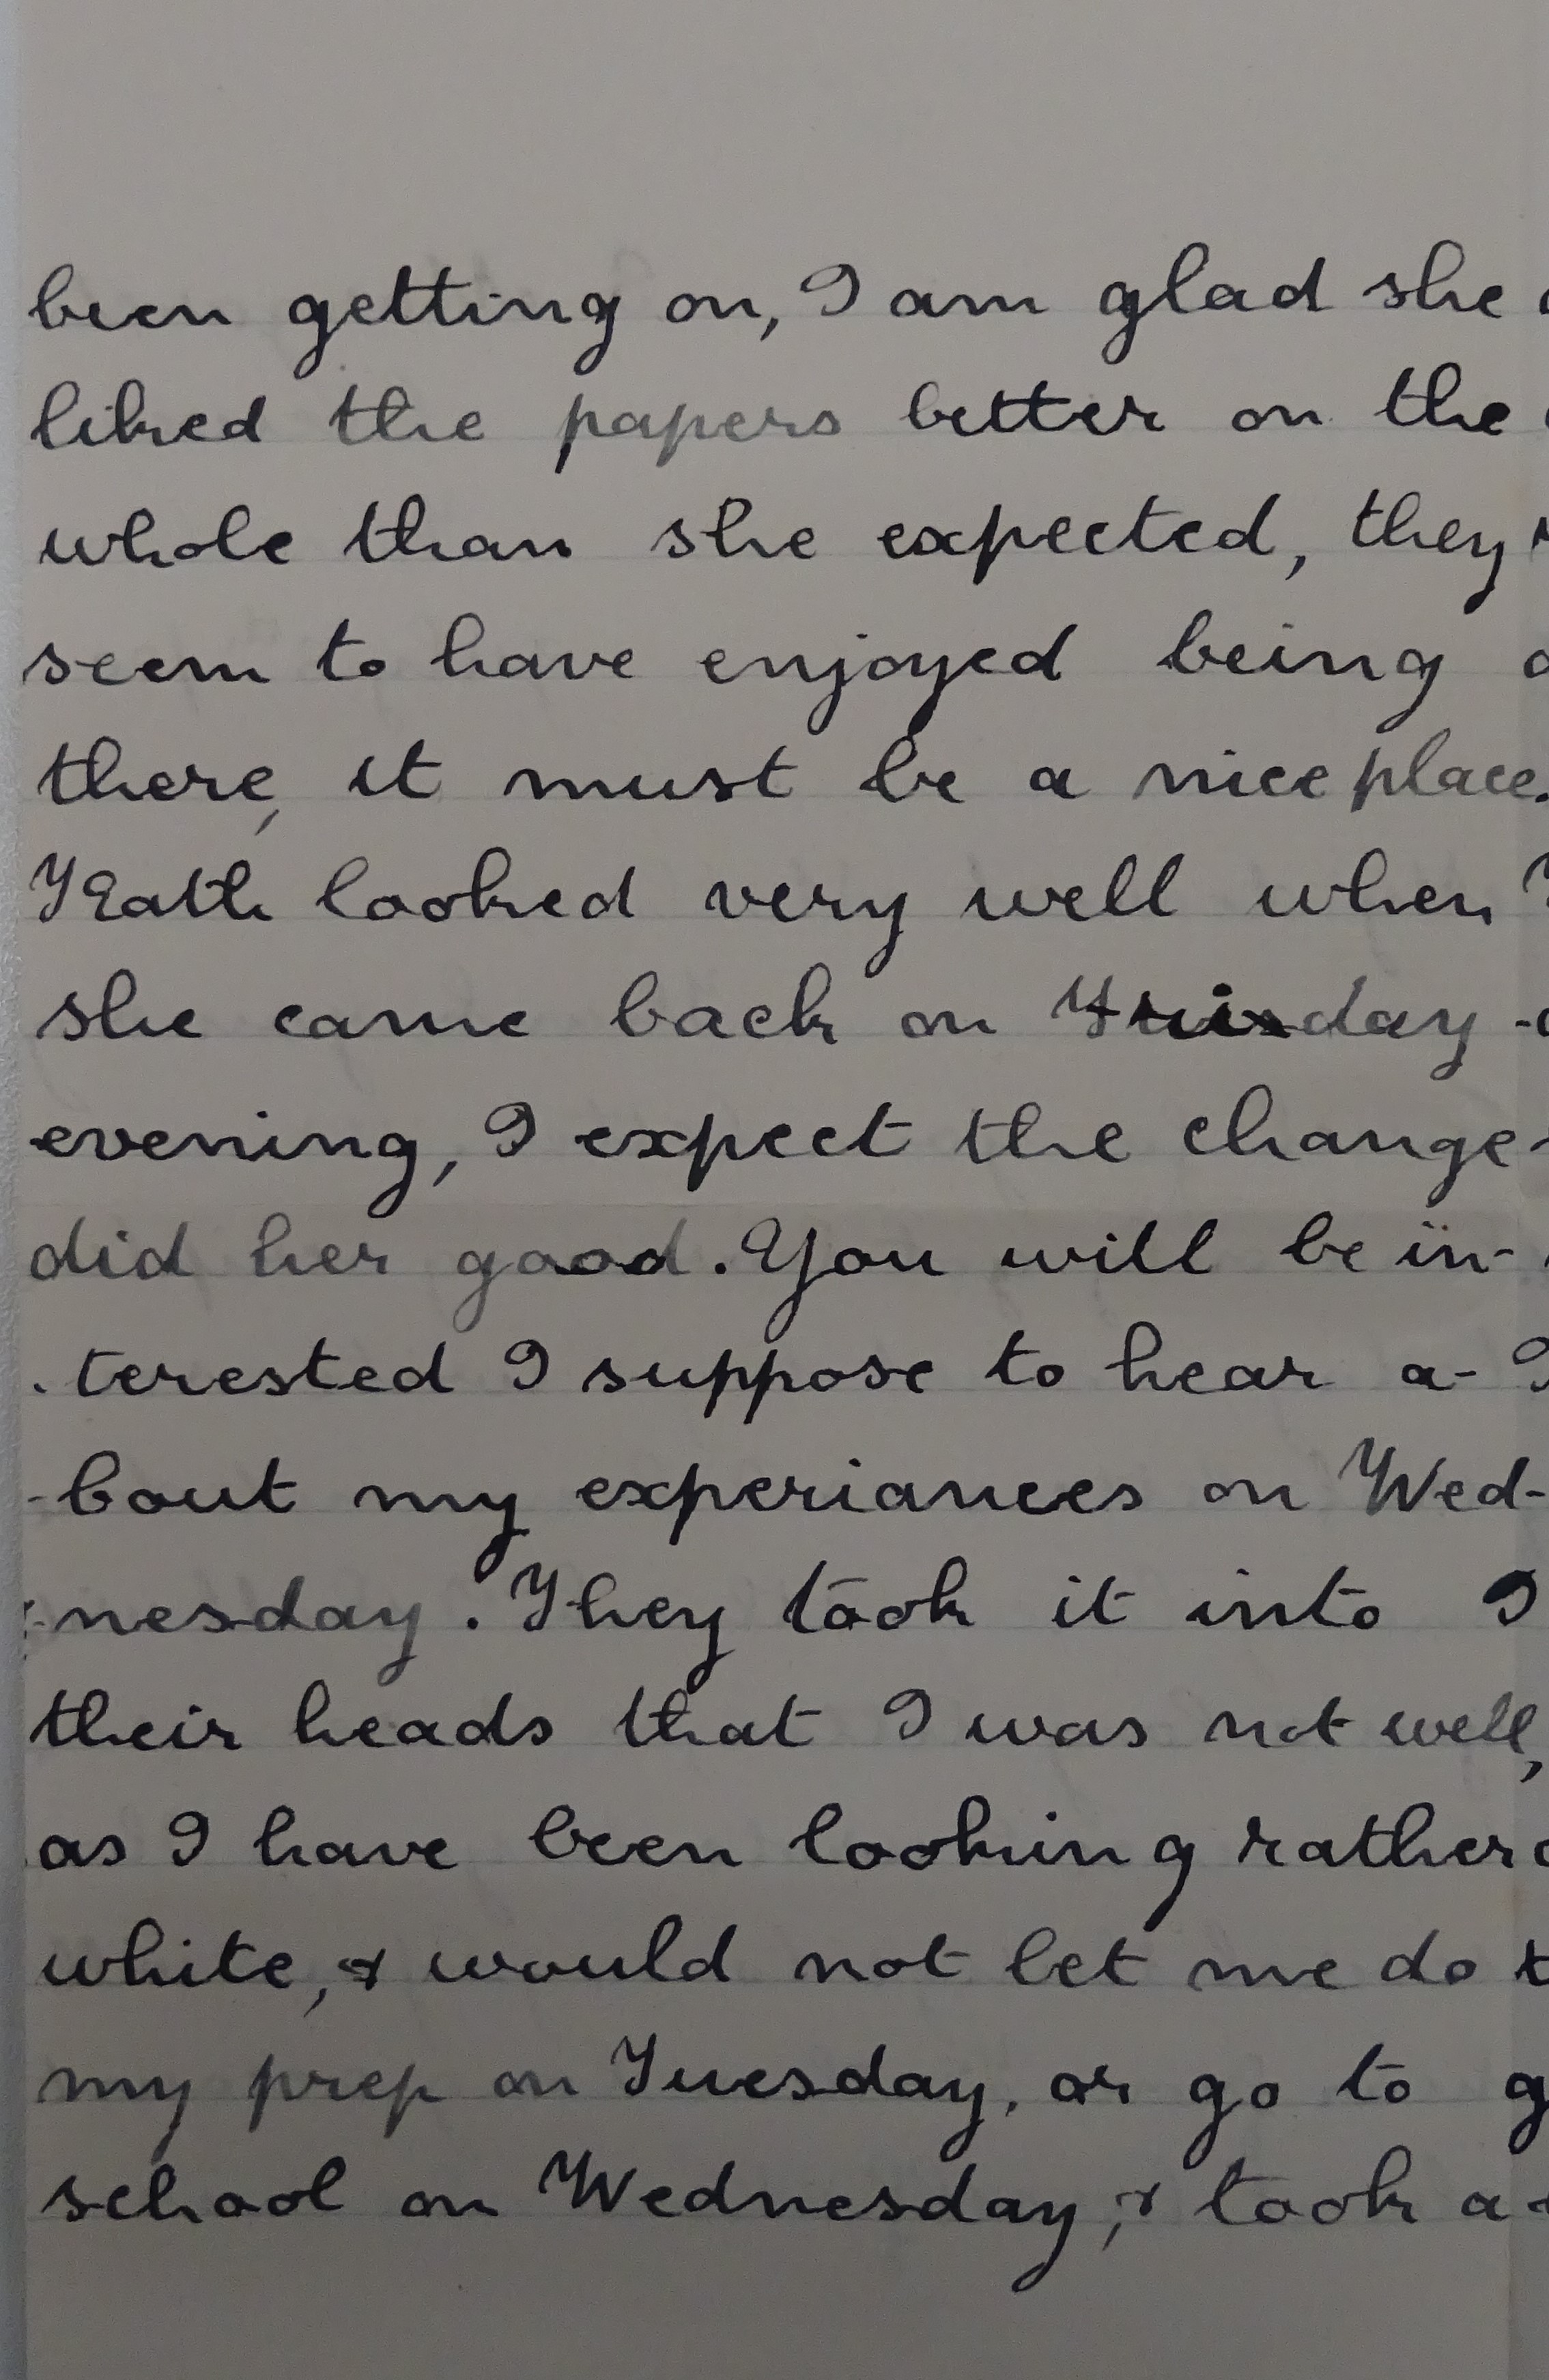 been getting on, I am glad she
liked the papers better on the
whole than she expected, they
seem to have enjoyed being
there, it must be a nice place.
Kath looked very well when
she came back on day
evening, I expect the change
did her good. You will be in-
terested I suppose to hear a-
-bout my experiances on Wed-
-nesday. They took it into
their heads that I was not well,
as I have been looking rather
white, & would not let me do
my prep on Tuesday, or go to
school on Wednesday, & took a